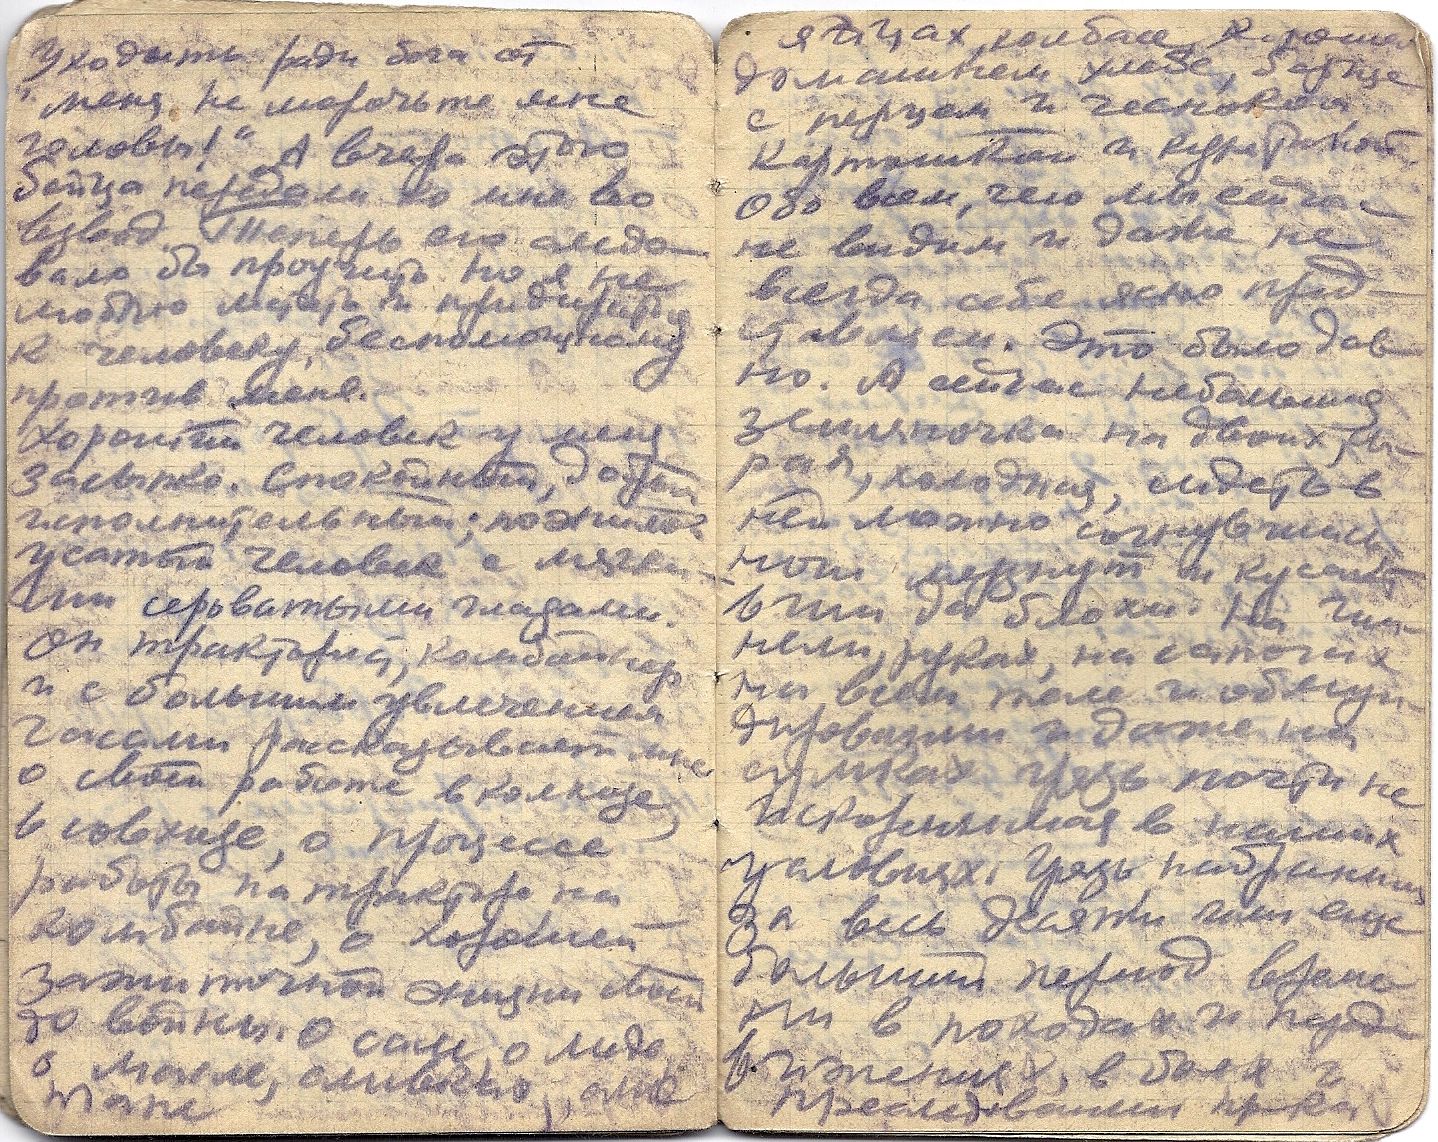 Уходить ради бога от
меня, не морочьте мне
головы!" А вчера этого
бойца передали ко мне во
взвод. Теперь его следо
вало бы проучить но я не
люблю мстить и придираться
к человеку, беспомощному
против меня.
Хороший человек у меня
Залытко. Спокойный, добрый
исполнительный; пожилой
усатый человек с мягки-
ми серьватыми глазами.
Он тракторист, комбайнер
и с большим увлечением
часами рассказывает мне
о своей работе в колхозе
в совхозе, о процессе
работы на тракторе на
комбайне, о хорошей
зажиточной жизни своей
до войны. О сале, о
о масле, сливках,

яйцах, колбасе, хорошем
домашнем хлебе, борще
с перцем и чесноком
картошкой и
обо всем, чего мы сейчас
не видим и даже не
всегда себе ясно пред-
ставляем. Это было дав
но. А сейчас небольшая
земляночка на двоих, сы-
рая, холодная, сидеть в
ней можно согнувшись
ноги мерзнут и кусают
вши да блохи. На ши-
нели, руках, на сапогах
на всем теле и обмун-
дировании и даже на
сумках грязь почти не
искоренимая в наших
условиях. Грязь набранная
за весь десяти или еще
больший период време
ни в походах и перед
вижениях, в боях и
преследовании врага